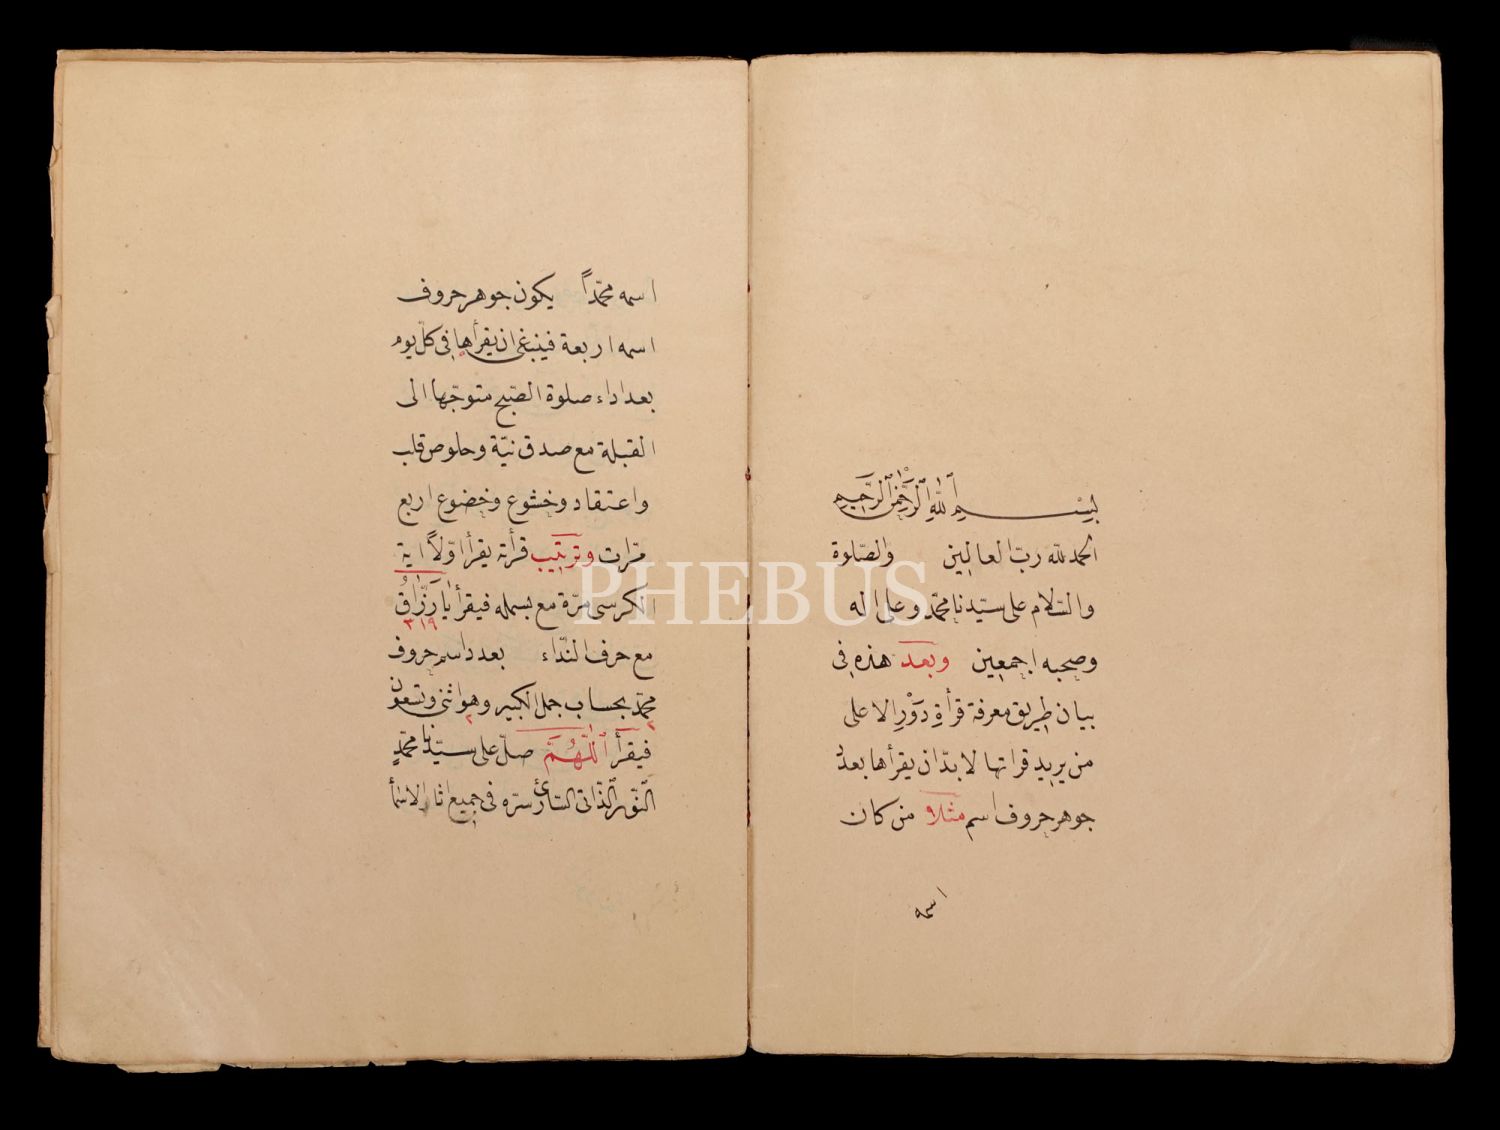 بِسْــــمِ ٱللّٰهِ ٱلرَّحْمٰنِ ٱلرَّحِيمِ
الحمد لله ربّ العالمين والصّلوة
والسّلام على سيّدنا محمّد وعلى اله
وصحبه اجمعين وبعد هذه فى
بيان طريق معرفة قرأة دَوْرِ الاعلى
من يريد قراتها لا بدّ ان يقرأها بعدد
جوهر حروف اسم مثلا من كان
اسمه
اسمه محمّداً يكون جوهر حروف
اسمه اربعة فينبغى ان يقرأها فى كلّ يوم
بعد اداء صلوة الصّبح متوجّها الى
القبلة مع صدق نيّة وحلوص قلب
واعتقاد وخشوع وخضوع اربع
مرّات وترتيب قرأته يقرأ اوّلاً اية
الكرسى مرّة مع بسمله فيقرأ يَا رَزَّاقُ
٣١٩
مع حرف النّداء بعدد اسم حروف
محمّد بحساب جمل الكبير وهو اثنى وتسعون
فيقرأ ٱللّٰهُمَّ صلّ على سيّدنا محمّدٍ
النّور الذّاتى السّارئ سرّه فى جميع اثار الاسمأ
PHEBUS